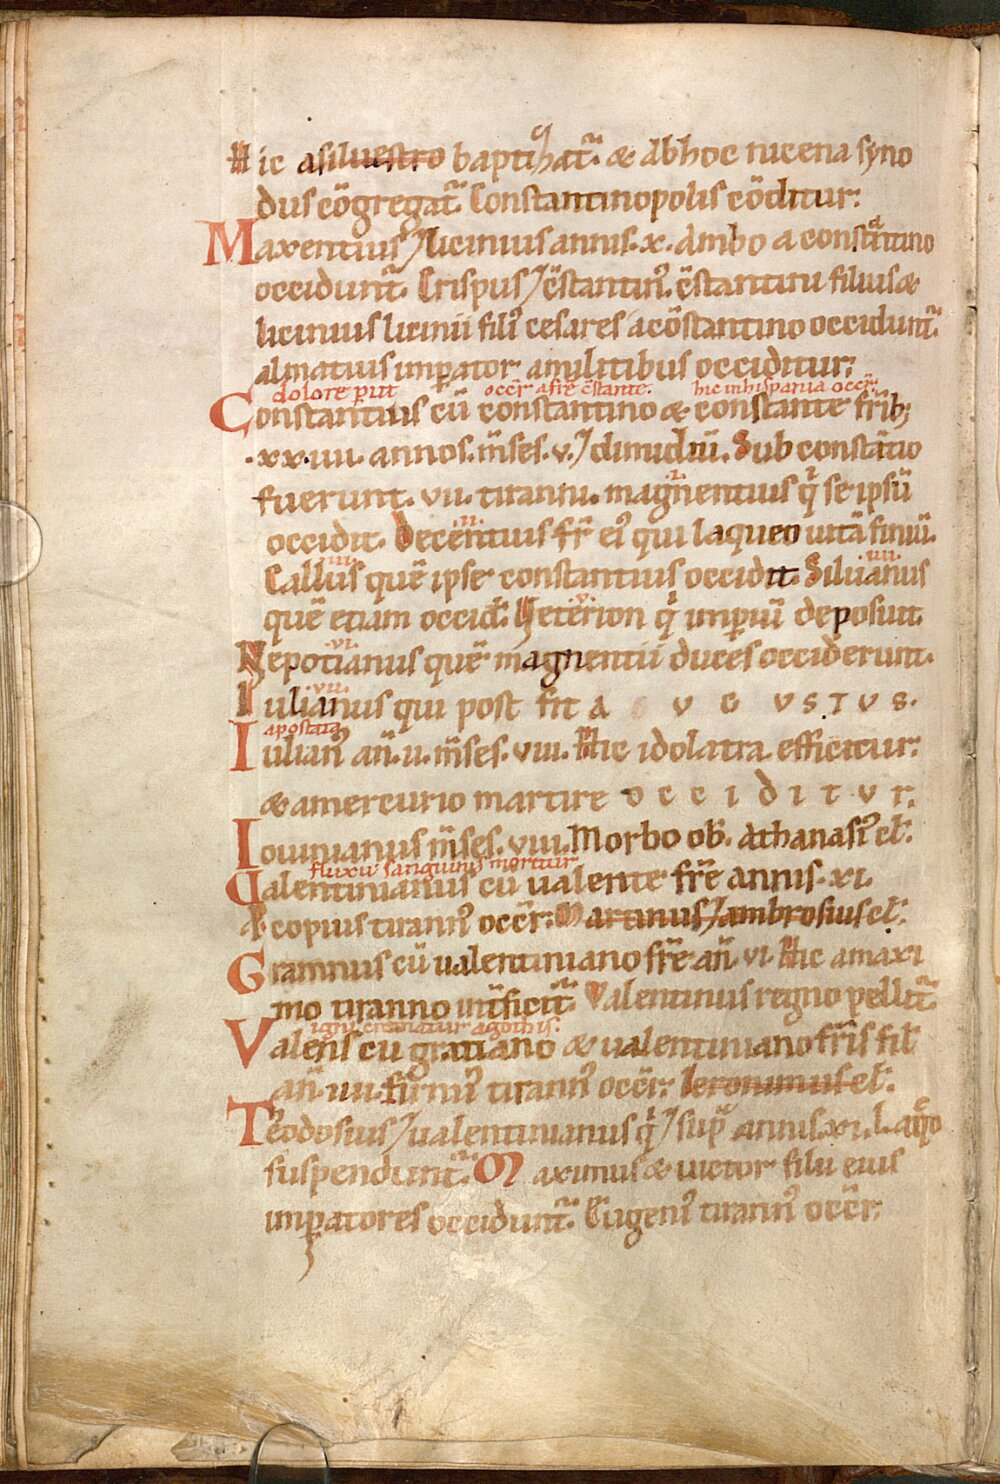 Hic asiluestro baptizat᷑. & abhoc nicena syno
dus cōgregat᷑. Constantinopolis cōditur.
Maxentius ⁊ licinius annis. x. Ambo a constātino
occidunt᷑. Crispus ⁊ cōstantin᷒. cōstantini filius &
licinius licinii fili᷒ cesares acōstantino occidunt᷑.
almatius imꝑator amilitibus occiditur.
dolore ꝑiit occir̄ afr̄e cōstante. hic inhispania occir̄.
Constantius cū constantino & constante fr̄ib;
.xx.iiii. annos. m̄ses. v. ⁊ dimidiū. Sub constātio
.i.
fuerunt. vii. tiranni. magnentius q̇ se ipsū
.ii.
occidit. Decentius fr̄ ei᷒ qui laqueo uitā finiii.
.iii. .iiii.
Gallus quē ipse constantius occidit. Siluanus
.v.
quē etiam occid̄. Veterion q̇ imꝑiū deposuit.
.vi.
Nepotianus quē magnentii duces occiderunt.
.vii.
Iulianus qui post fit A V G V S T V S.
apostata
Iulian᷒ an̄. ii. m̄ses. viii. Hic idolatra efficitur.
& amercurio martire o c c i d i t v r.
Iouinianus m̄ses. viii. Morbo ob̄. Athanasi᷒ cl̄.
fluxu sanguinis moritur
Ualentinianus cū ualente fr̄e annis. xi.
Pcopius tirann᷒ occir̄. Martinus ⁊ ambrosius cl̄.
Gratianus cū ualentiniano fr̄e an̄. vi. Hic amaxi
mo tiranno int̄ficit᷑. Valentinus regno pellit᷑.
igni crematur agothis.
Valens cū gratiano & ualentiniano fr̄is fil̄
an̄. iiii. firmi᷒ tirann᷒ occir̄. Ieronimus cl̄.
Teodosius ⁊ ualentinianus q̇ ⁊ sup̄ annis. xi. Laq̄o
suspendunt᷑. Maximus & uictor filii eius
imꝑatores occidunt᷑. Eugeni᷒ tirann᷒ occir̄.